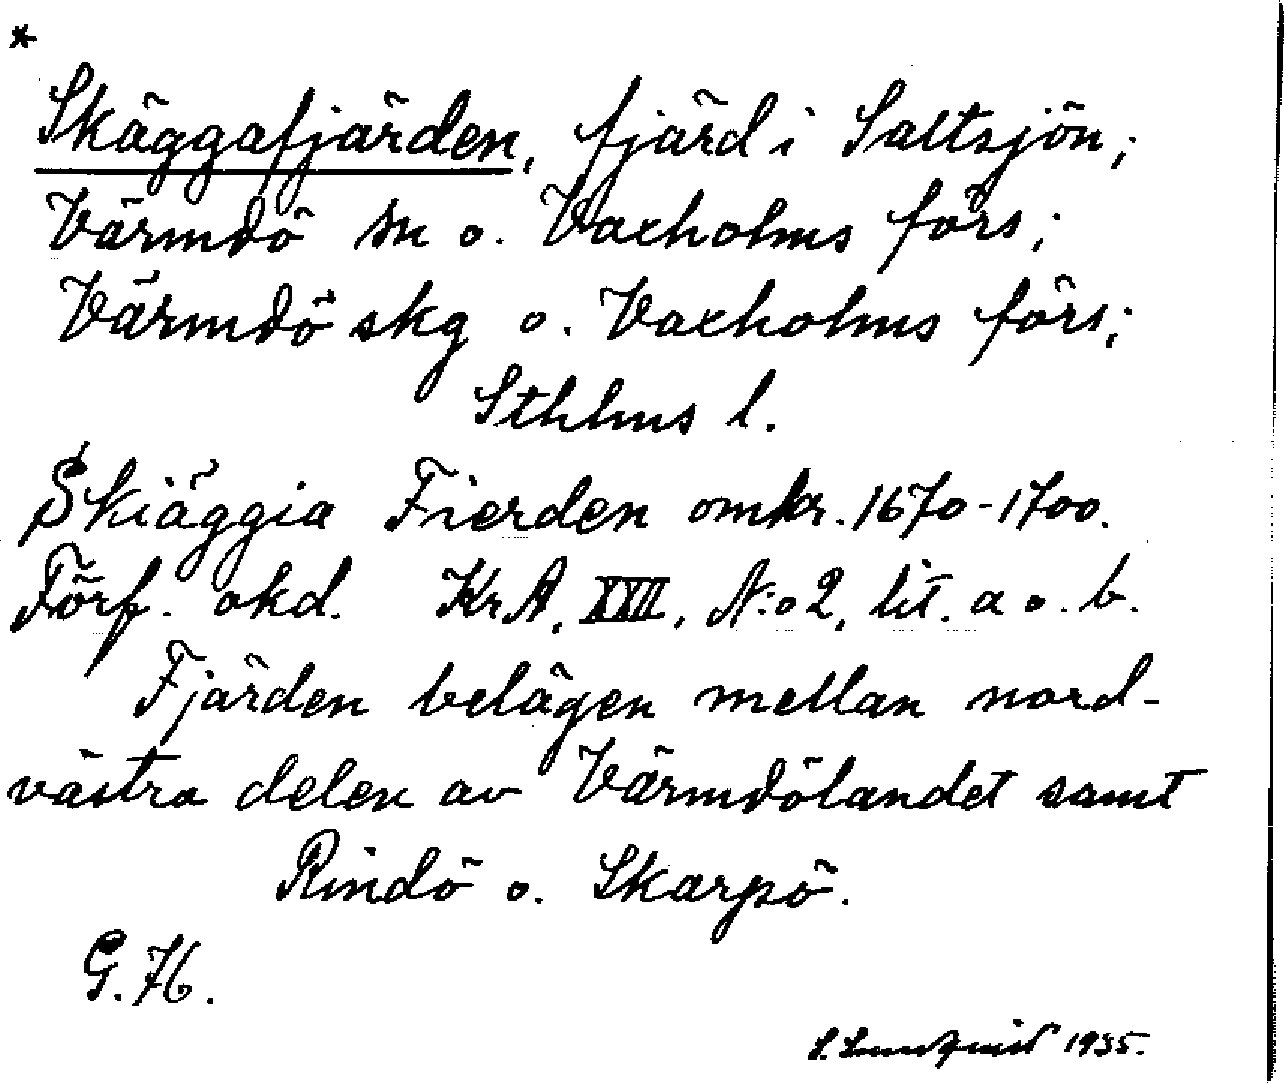 *
Skäggafjärden, fjärd i Saltsjön;
Värmdö sn o. Vaxholms förs;
Värmdö skg o. Vaxholms förs;
Sthlms l.
Skiäggia Fierden omkr. 1670-1700.
Förf. okd. KrA, XVII, N:o 2, lit. a o. b.
Fjärden belägen mellan nord-
västra delen av Värmdölandet samt
Rindö o. Skarpö.
G. H.
S. Lundquist 1935.